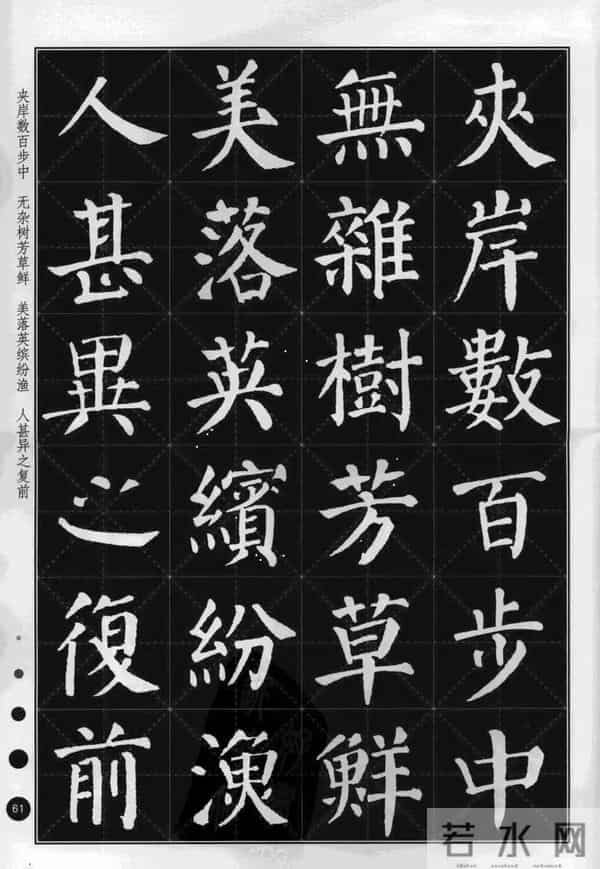 夾岸數百步中
無雜樹芳草鮮
美落英繽紛漁
人甚異之復前
夹岸数百步中 无杂树芳草鲜 美落英缤纷渔 人甚异之复前
61
若水网